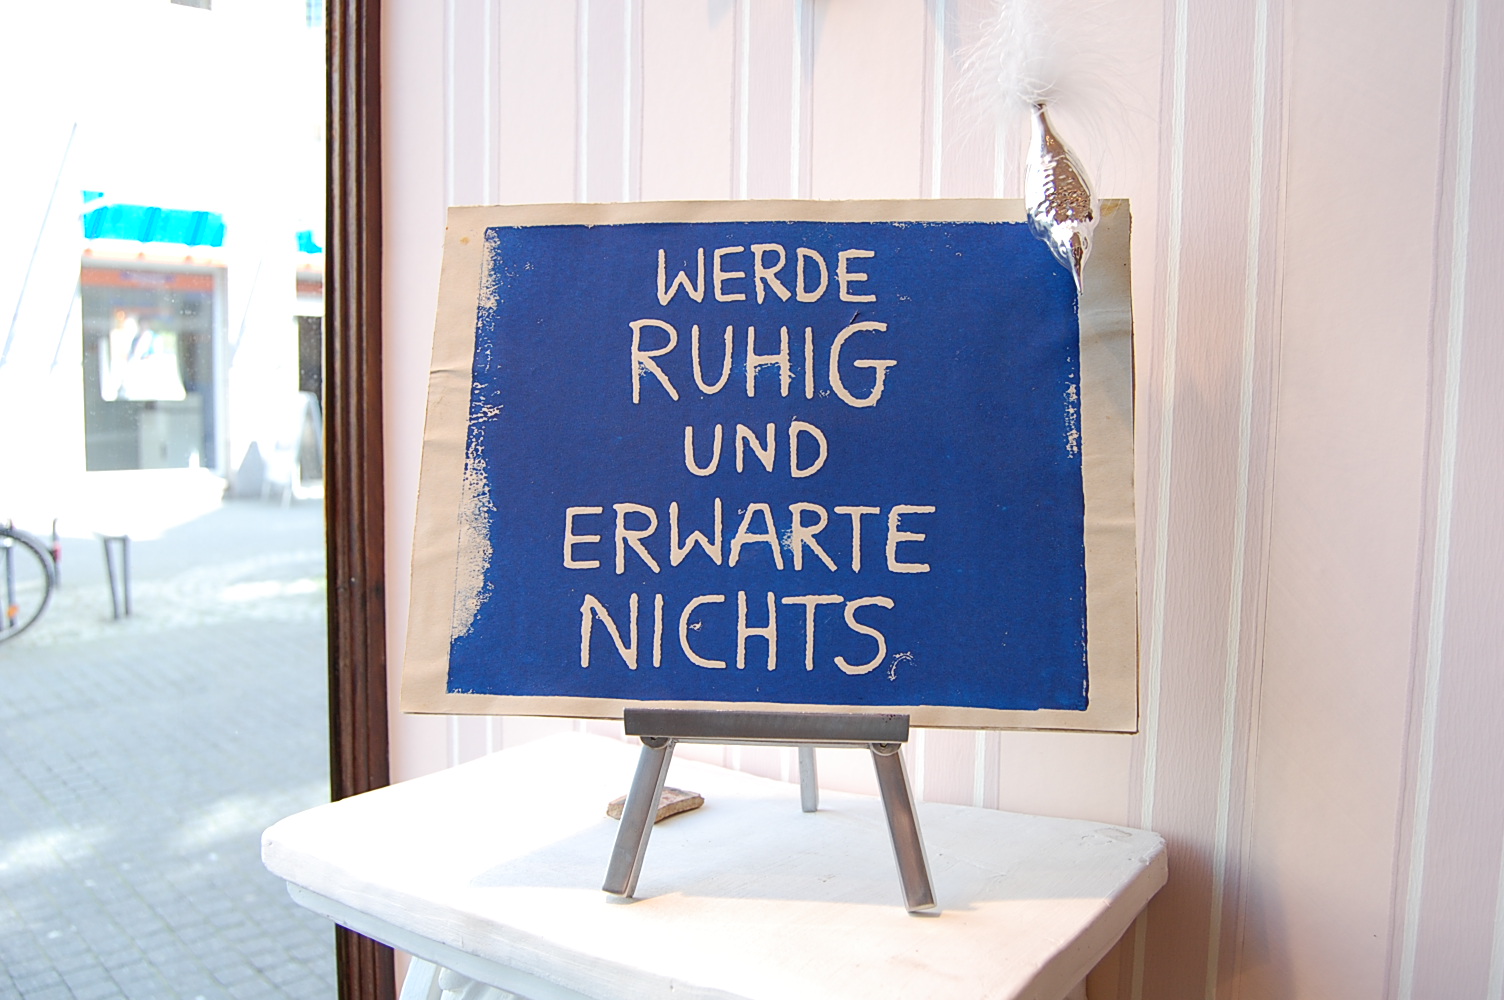 WERDE
RUHIG
UND
ERWARTE
NICHTS.